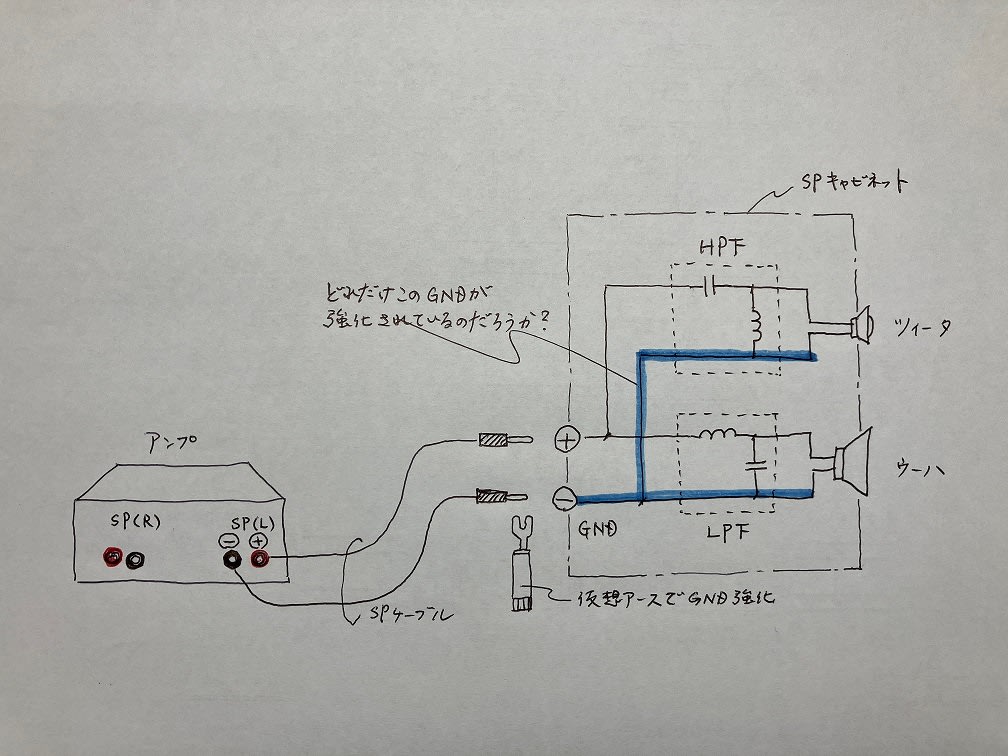 SPキャビネット
HPF
どれだけこのGNDが
強化されているのだろうか?
ツィータ
アンプ
⊕
ウーハ
SP(R)
SP(L)
⊖ ⊕
⊖
GND
LPF
SPケーブル
仮想アースでGND強化